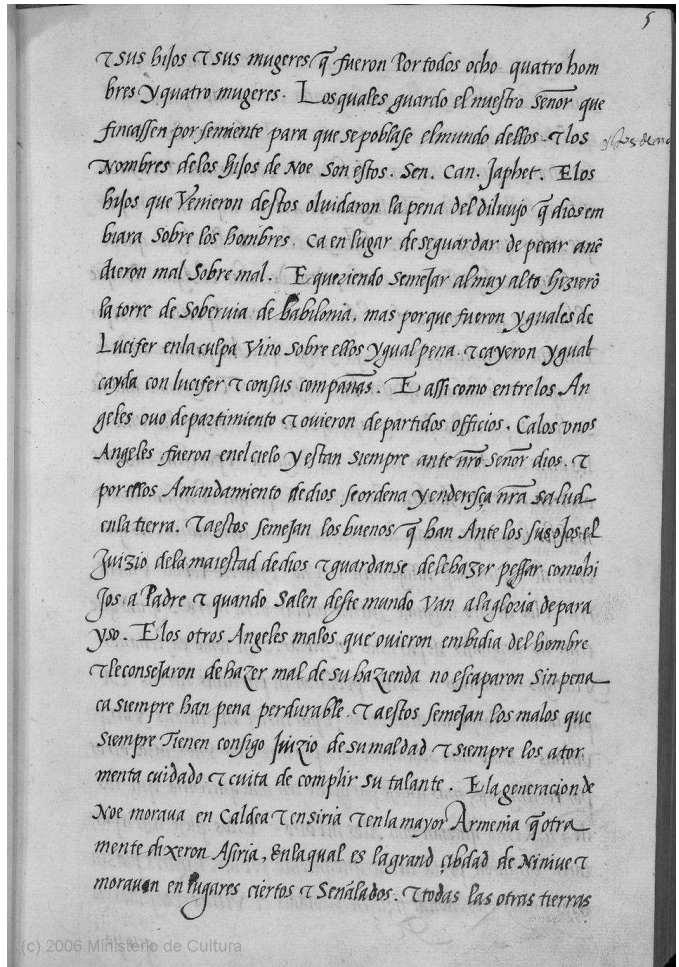 5
⁊ sus hijos ⁊ sus mugeres q̃ fueron Por todos ocho quatro hom
bres y quatro mugeres. Los quales guardo el nuestro Señor que
fincassen por semiente para que se poblase el mundo dellos. ⁊ los
Nombres de los hijos de Noe son estos. Sen. Can. Japhet. E los
hijos que Venieron destos oluidaron la pena del diluujo q̃ dios em
biara sobre los hombres. ca en lugar de se guardar de pecar anẽ
dieron mal sobre mal. E queriendo semejar al muy alto hizierõ
la torre de Soberuia de babilonia, mas porque fueron yguales de
Lucifer en la culpa Vino sobre ellos ygual pena. ⁊ cayeron ygual
cayda con lucifer ⁊ con sus compañas. E assi como entre los An
geles ouo departimiento ⁊ ouieron departidos officios. Ca los vnos
Angeles fueron en el cielo y estan siempre ante nr̃o Señor dios. ⁊
por ellos A mandamiento de dios se ordena y enderesça nr̃a salud
en la tierra. ⁊ a estos semejan los buenos q̃ han Ante los sus ojos el
Juizio de la maiestad de dios ⁊ guardanse de le hazer pessar como hi
jos a Padre ⁊ quando salen deste mundo van a la gloria de para
yso. E los otros Angeles malos que ouieron embidia del hombre
⁊ le consejaron de hazer mal de su hazienda no escaparon sin pena
ca siempre han pena perdurable. ⁊ a estos semejan los malos que
siempre Tienen consigo Juizio de su maldad ⁊ siempre los ator
menta cuidado ⁊ cuita de complir su talante. E la generacion de
Noe moraua en Caldea ⁊ en siria ⁊ en la mayor Armenia q̃ otra
mente dixeron Asiria, En la qual es la grand çibdad de Niniue ⁊
morauan en lugares ciertos ⁊ Señalados. ⁊ todas las otras tierras
(c) 2006 Ministerio de Cultura